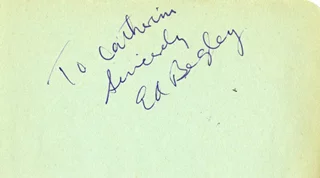 To Catherin
Sincerely
Ed Begley